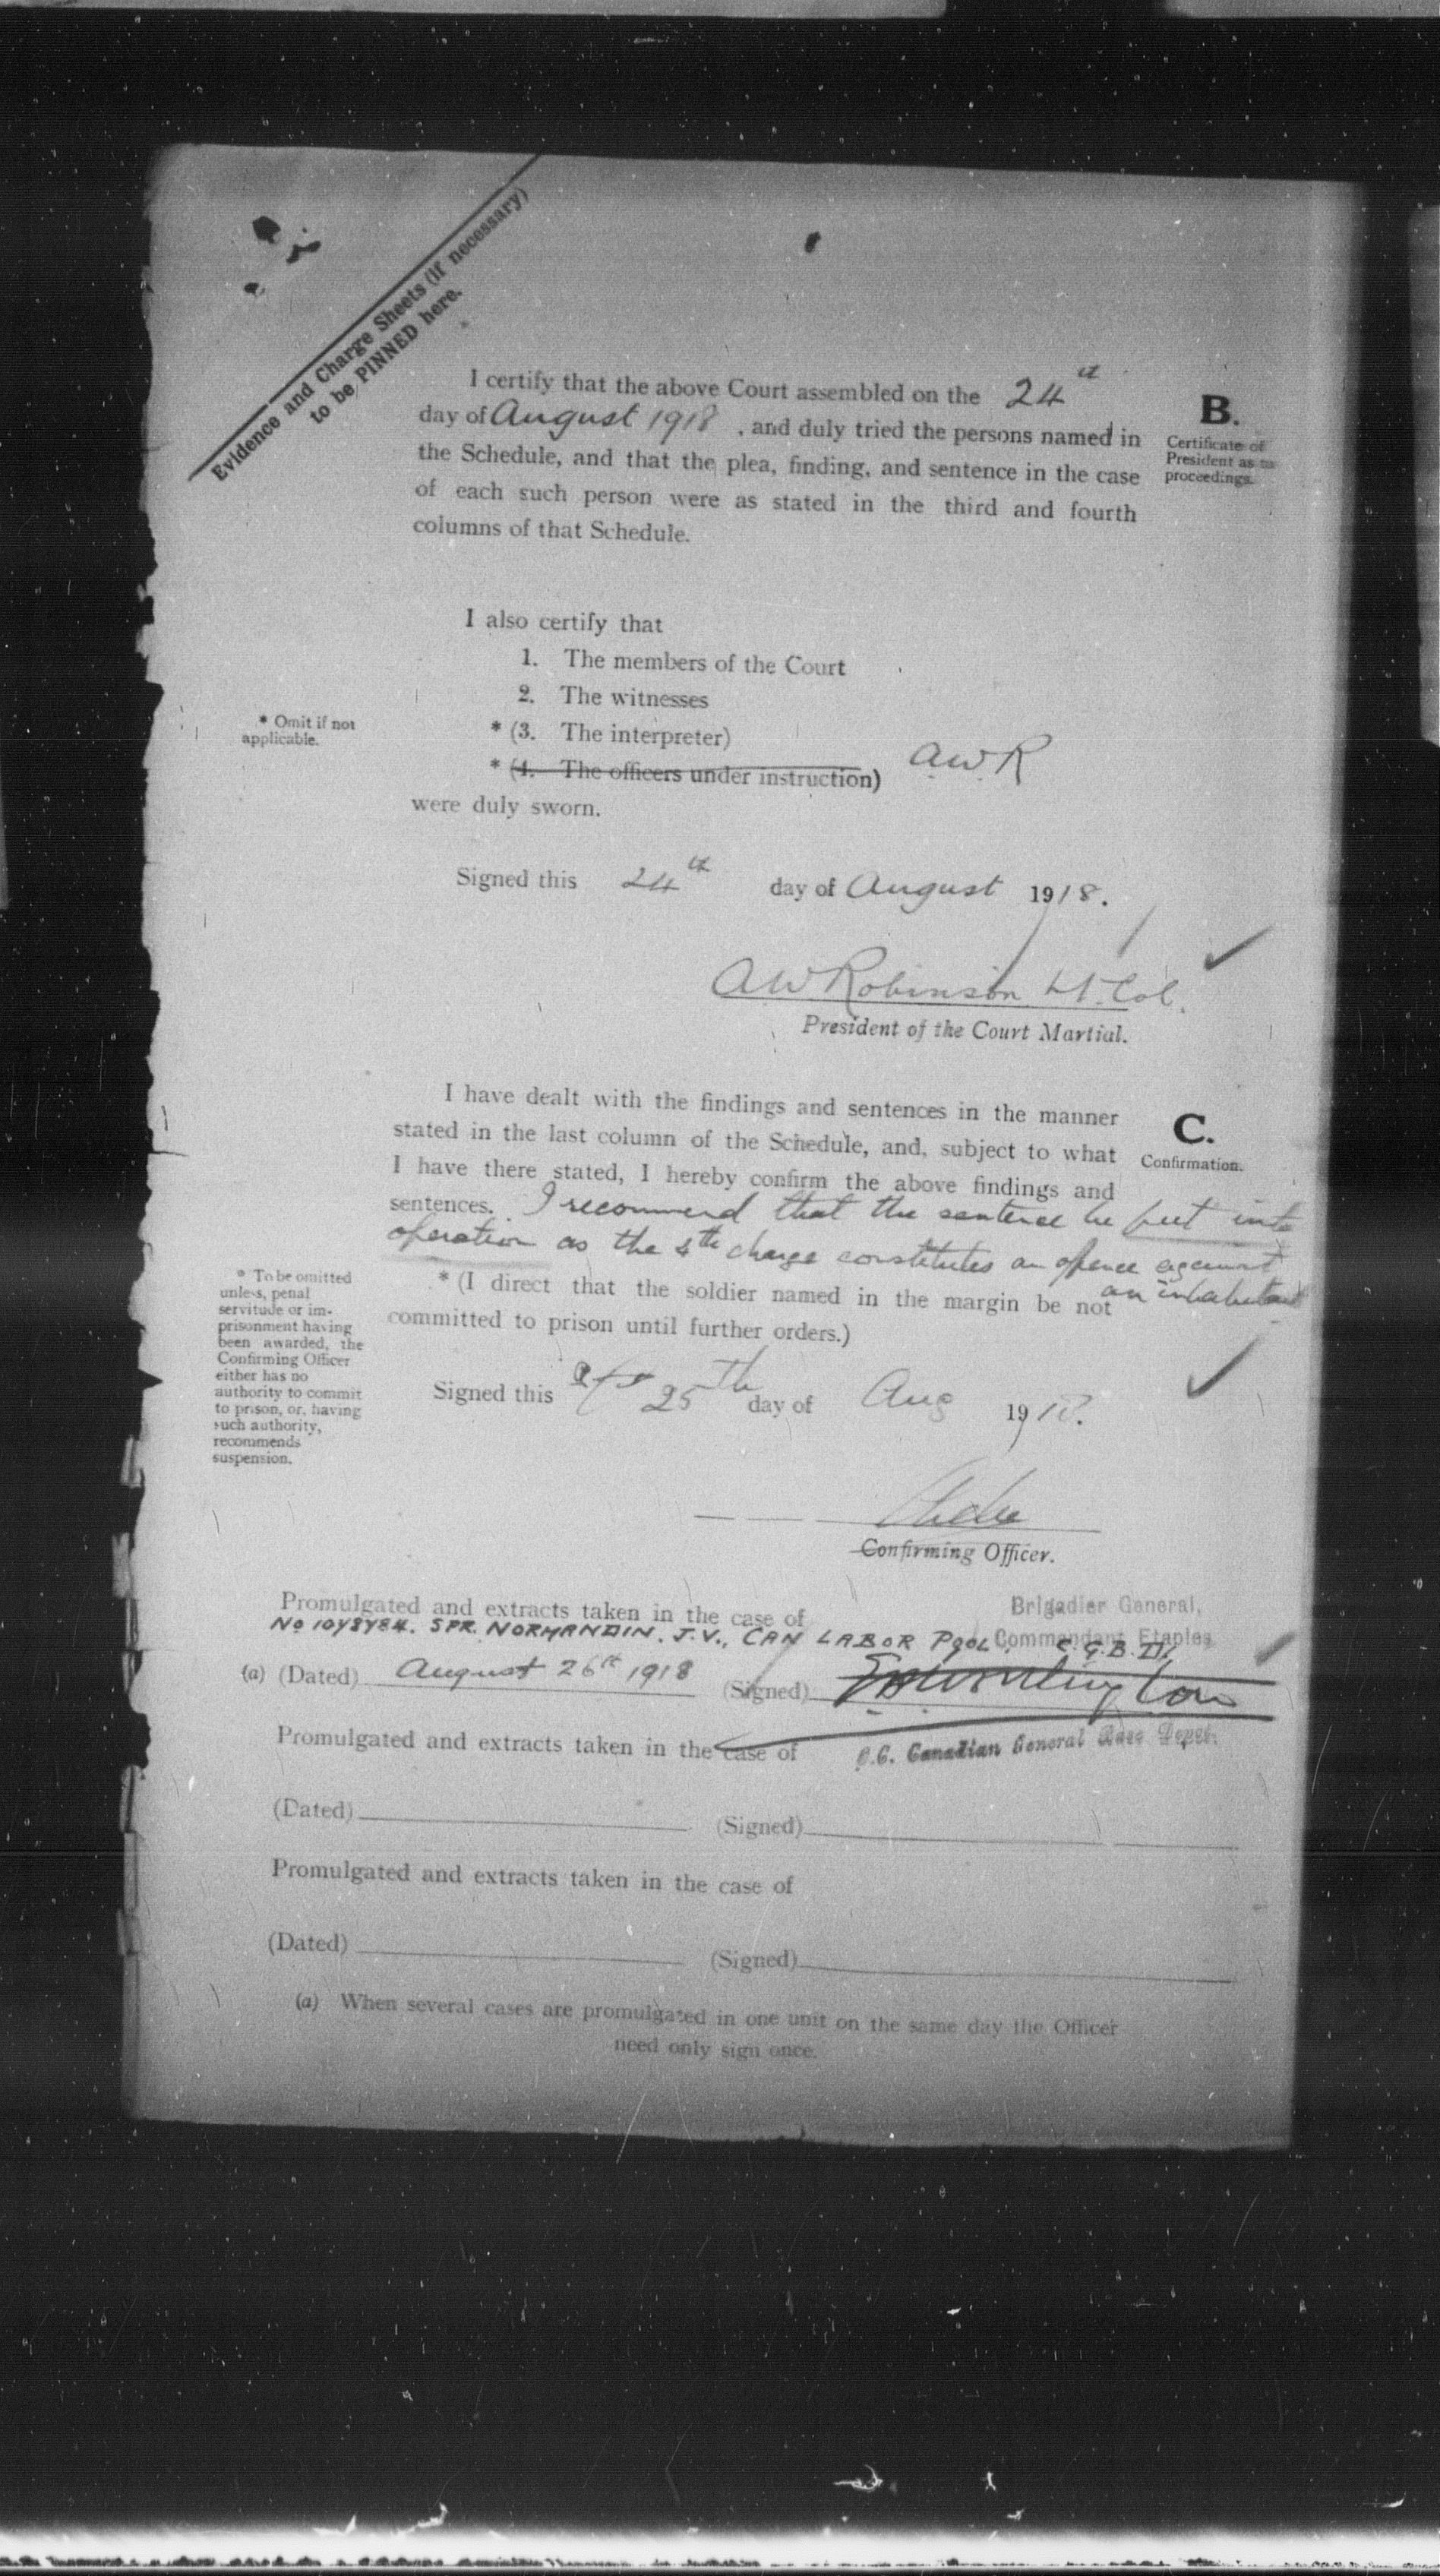 Evidence and Charge Sheets (if necessary)
to be PINNED here.
I certify that the above Court assembled on the 24th
day of August 1918, and duly tried the persons named in
the Schedule, and that the plea, finding, and sentence in the case
of each such person were as stated in the third and fourth
columns of that Schedule.
B.
Certificate of
President as to
proceedings.
I also certify that
1. The members of the Court
2. The witnesses
* (3. The interpreter)
* (4. The officers under instruction)
A.W.R
were duly sworn.
* Omit if not
applicable.
Signed this 24th day of August 1918.
AW Robinson Lt. Col.
President of the Court Martial.
I have dealt with the findings and sentences in the manner
stated in the last column of the Schedule, and, subject to what
I have there stated, I hereby confirm the above findings and
sentences. I recommend that the sentence be put into
operation as the 4th charge constitutes an offence against
an inhabitant
C.
Confirmation.
* (I direct that the soldier named in the margin be not
committed to prison until further orders.)
* To be omitted
unless, penal
servitude or im-
prisonment having
been awarded, the
Confirming Officer
either has no
authority to commit
to prison, or, having
such authority,
recommends
suspension.
Signed this 25th day of Aug 1918.
Confirming Officer.
Brigadier General,
Commandant Etaples
Promulgated and extracts taken in the case of
No 1048484. SPR. NORMANDIN. J.V., CAN LABOR POOL, C.G.B.D.
(a) (Dated) August 26th 1918 (Signed)
O.C. Canadian General Base Depot.
Promulgated and extracts taken in the case of
(Dated) (Signed)
Promulgated and extracts taken in the case of
(Dated) (Signed)
(a) When several cases are promulgated in one unit on the same day the Officer
need only sign once.